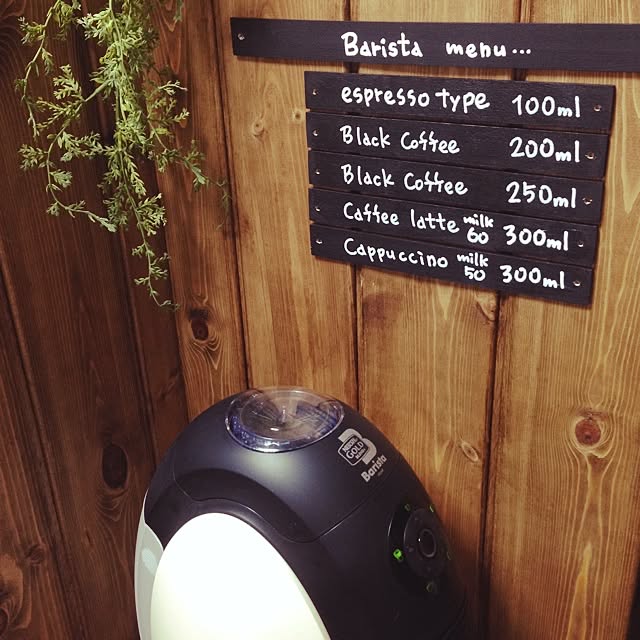 Barista menu...
espresso type 100ml
Black Coffee 200ml
Black Coffee 250ml
Caffee latte milk 60 300ml
Cappuccino milk 50 300ml
B
NESCAFÉ
GOLD
BLEND
Barista